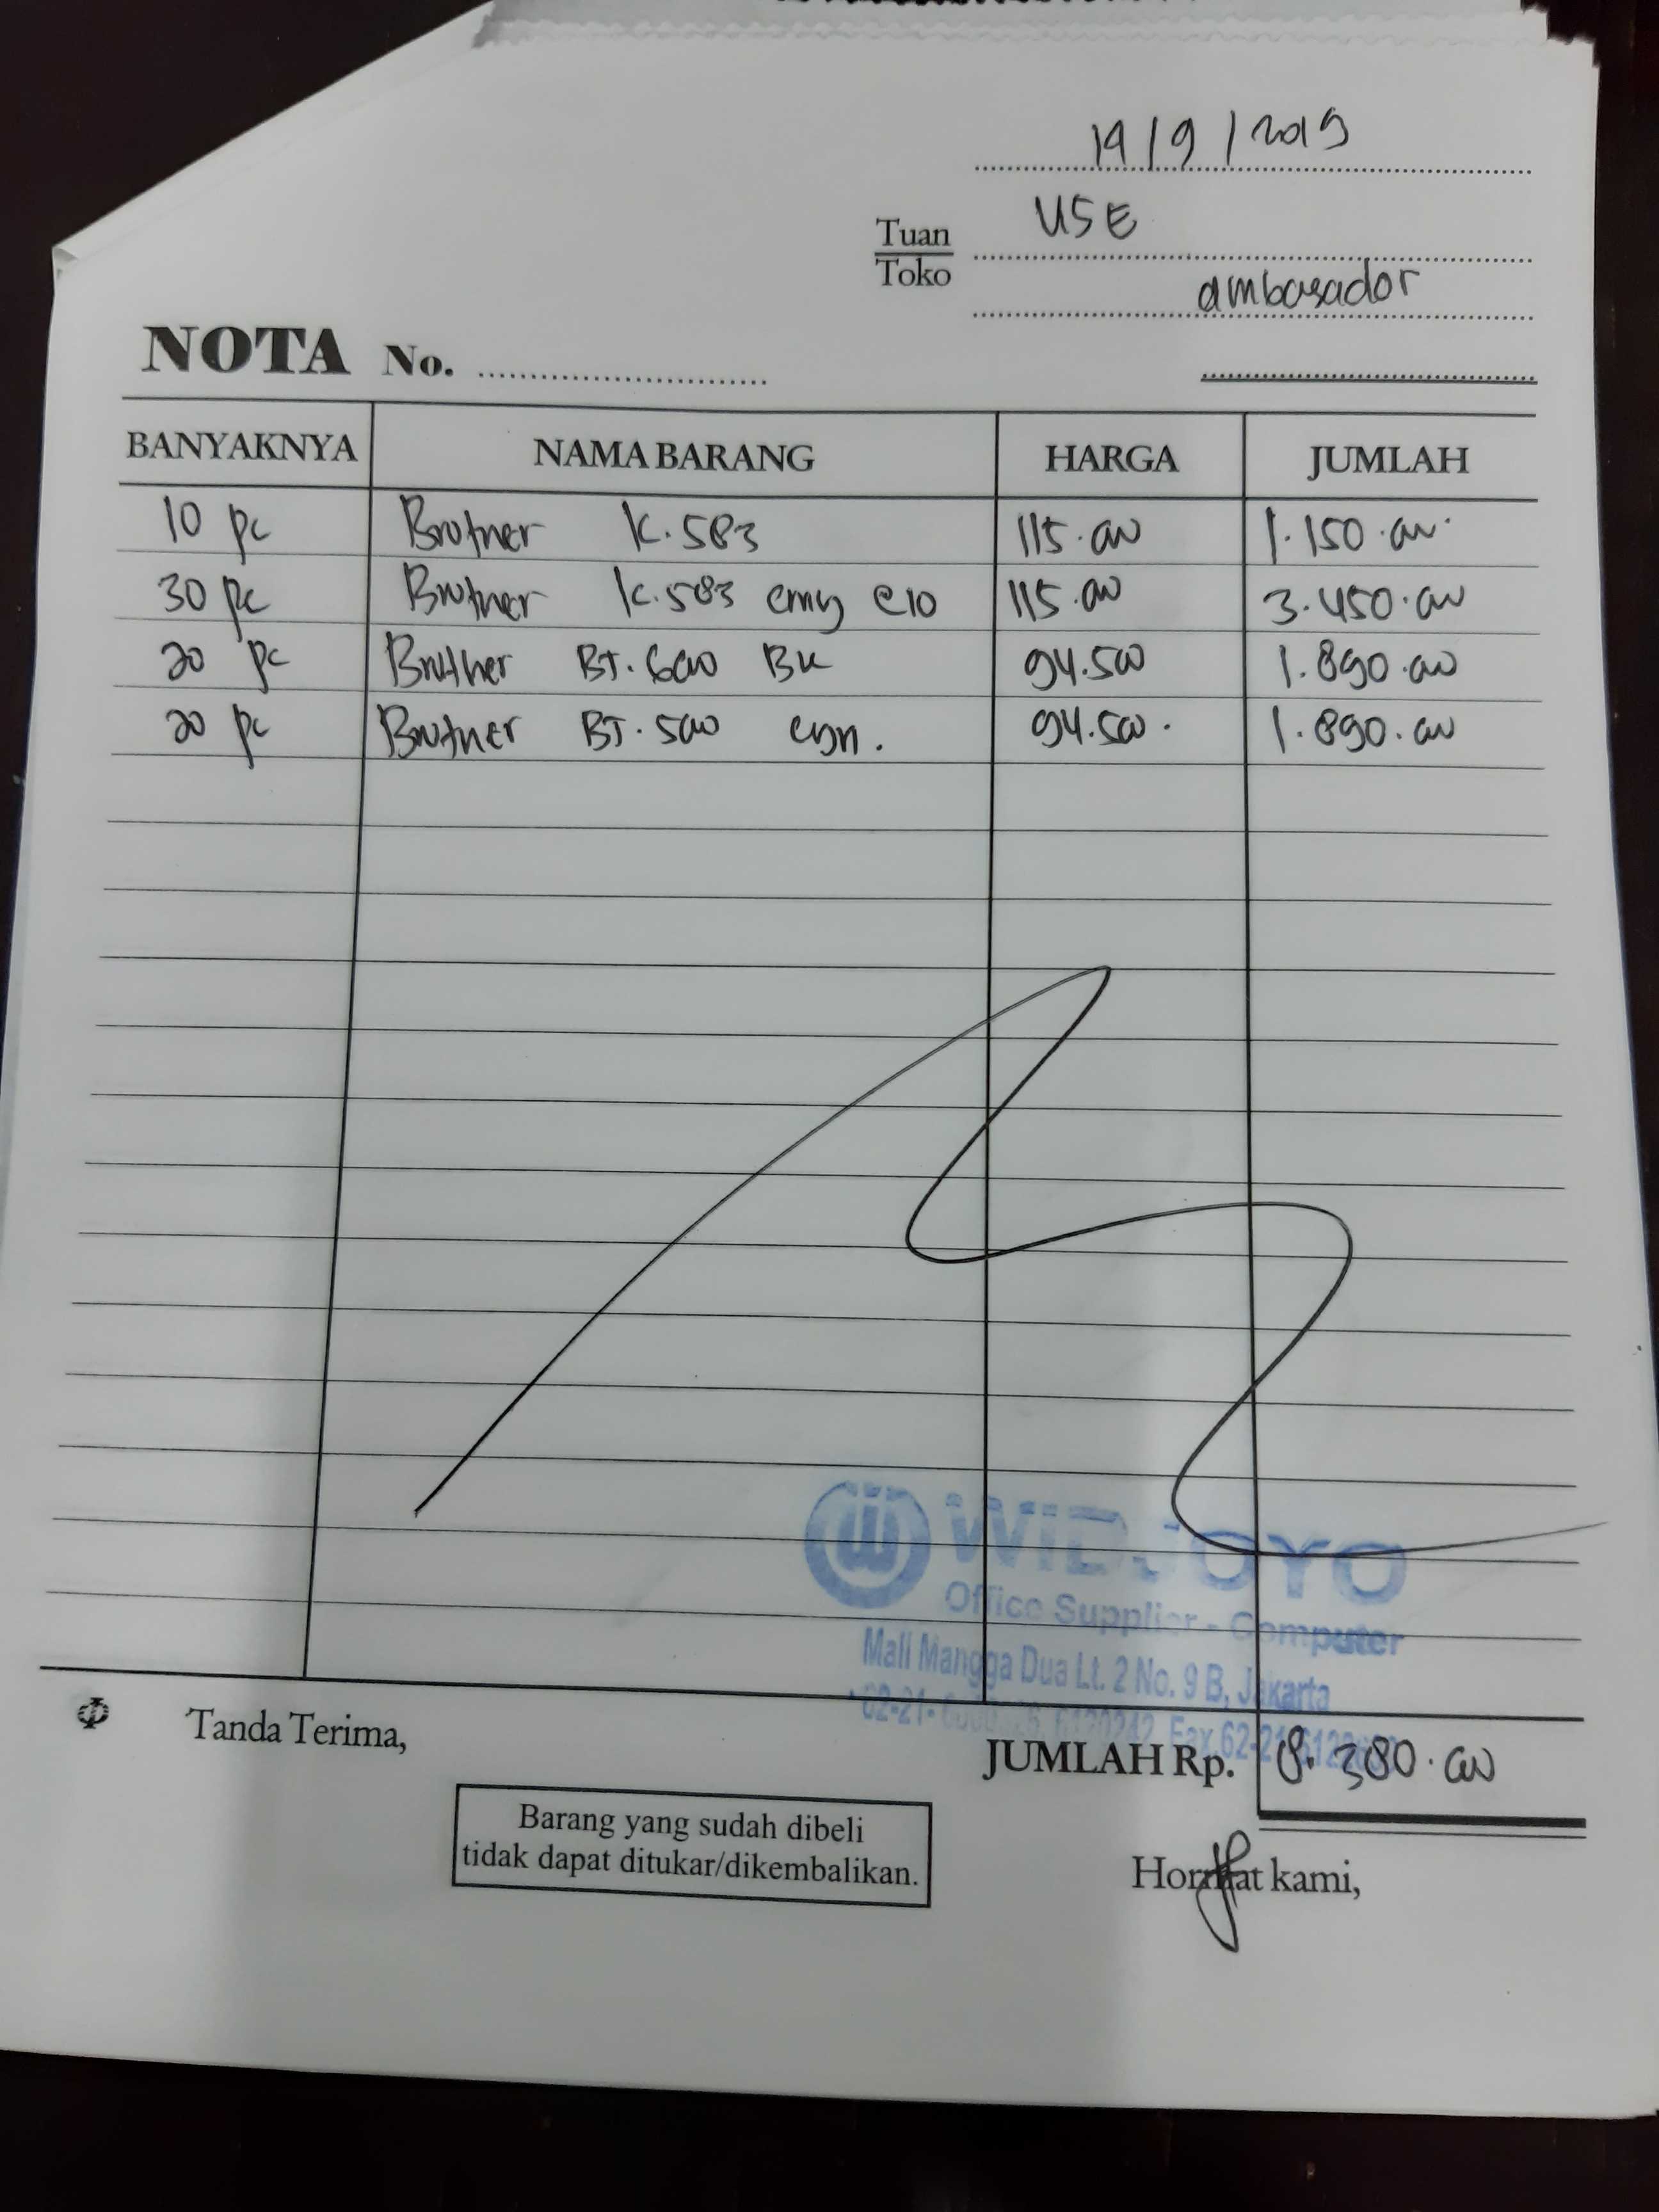 19/9/2019
Tuan
Toko
USE
ambasador
NOTA No.
BANYAKNYA NAMA BARANG HARGA JUMLAH
10 pc Brother K.583 115.000 1.150.000
30 pc Brother K.583 cmy @10 115.000 3.450.000
20 pc Brother BT.6000 BK 94.500 1.890.000
20 pc Brother BT.5000 cyn. 94.500. 1.890.000
WIDJOYO
Office Supplier - Computer
Mall Mangga Dua Lt. 2 No. 9 B, Jakarta
Tanda Terima,
JUMLAH Rp. 8.380.000
Barang yang sudah dibeli
tidak dapat ditukar/dikembalikan.
Hormat kami,